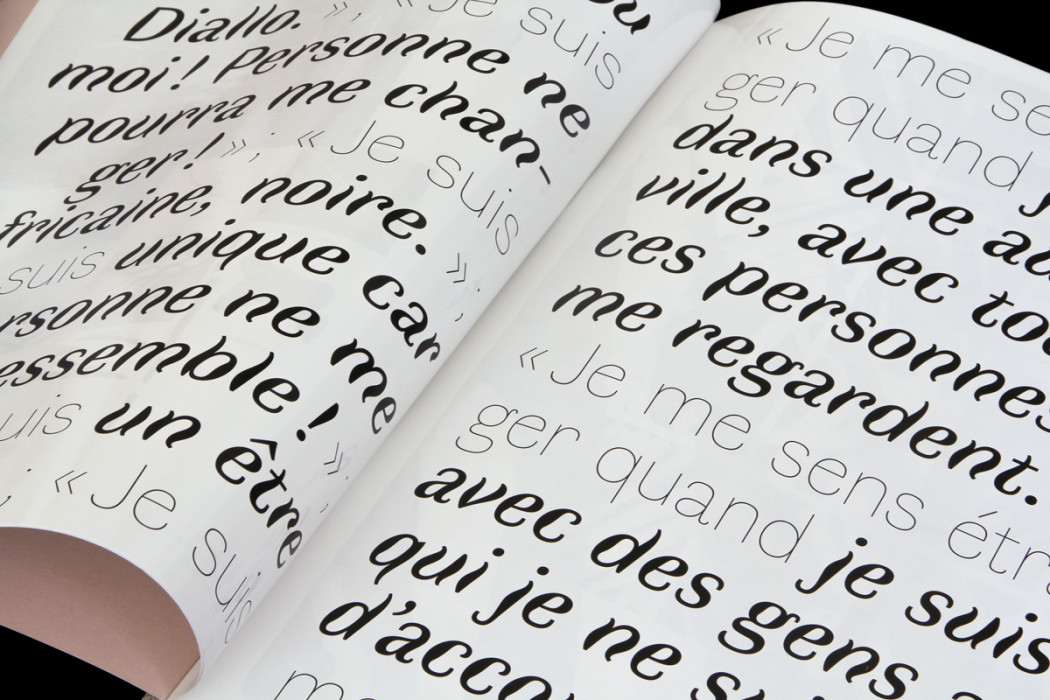 Diallo. », « Je suis
moi ! Personne ne
pourra me chan-
ger ! », « Je suis
fricaine, noire. »,
suis unique car
rsonne ne me
essemble ! »,
uis un être
; « Je suis
« Je me se
ger quand j
dans une au
ville, avec tou
ces personnes
me regardent.
« Je me sens étra
ger quand je suis
avec des gens a
qui je ne su
d’accor